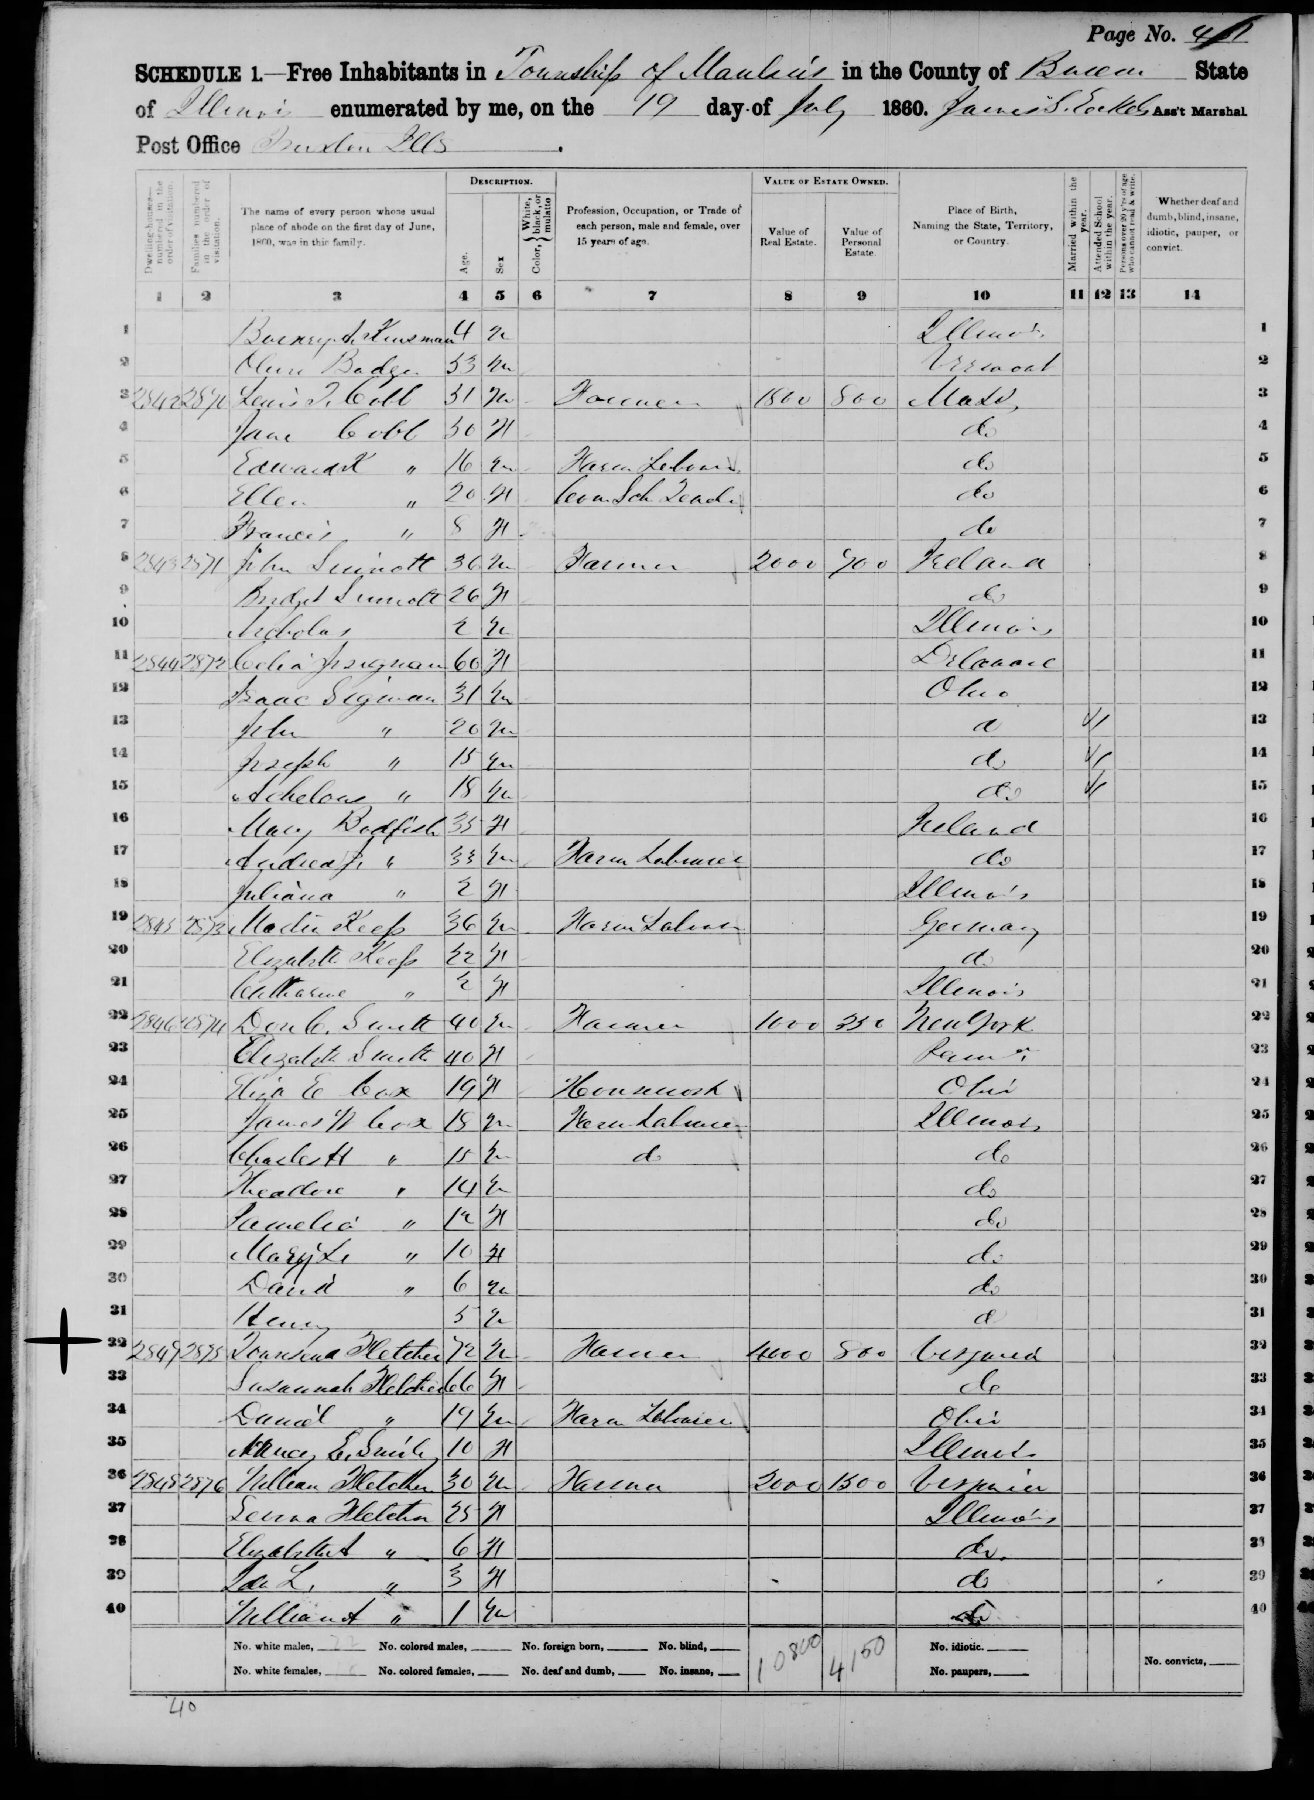 Page No. 4
SCHEDULE 1.—Free Inhabitants in Township of Manlius in the County of Bureau State
of Illinois enumerated by me, on the 19 day of July 1860. James S. Eckels Ass't Marshal
Post Office Trenton Ills.
DESCRIPTION. VALUE OF ESTATE OWNED.
Dwelling-houses—numbered in the order of visitation. Families numbered in the order of visitation. The name of every person whose usual place of abode on the first day of June, 1860, was in this family. Age. Sex Color, { White, black, or mulatto Profession, Occupation, or Trade of each person, male and female, over 15 years of age. Value of Real Estate. Value of Personal Estate. Place of Birth, Naming the State, Territory, or Country. Married within the year. Attended School within the year. Persons over 20 y'rs of age who cannot read & write. Whether deaf and dumb, blind, insane, idiotic, pauper, or convict.
1 2 3 4 5 6 7 8 9 10 11 12 13 14
1 Kinsman 4 m Illinois 1
2 Badger 53 m Vermont 2
3 2842 2870 Lewis T. Cobb 31 m Farmer 1800 800 Mass, 3
4 Jane Cobb 30 F do 4
5 Edward K " 16 m Farm Labour do 5
6 Ellen " 20 F Com Sch Teach do 6
7 Francis " 8 F do 7
8 2843 2871 John Sinnott 36 m Farmer 2000 700 Ireland 8
9 Bridget Sinnott 26 F do 9
10 Nicholas 2 m Illinois 10
11 2844 2872 Celia 60 F Delaware 11
12 Isaac Sigman 31 m Ohio 12
13 John " 20 m d 1 13
14 Joseph " 15 m do 1 14
15 Achelous " 18 m do 1 15
16 Mary Bodfish 35 F Ireland 16
17 Andrew J. " 33 m Farm Labourer do 17
18 Juliana " 2 F Illinois 18
19 2845 2873 Martin Keefs 36 m Farm Labour Germany 19
20 Elizabeth Keefs 32 F do 20
21 Catharine " 2 F Illinois 21
22 2846 2874 Don C. Smith 40 m Farmer 1000 350 New York 22
23 Elizabeth Smith 40 F Penn 23
24 Eliza E Cox 19 F Housework Ohio 24
25 James W Cox 18 m Farm Labourer Illinois 25
26 Charles H " 15 m do do 26
27 Theadore " 14 m do 27
28 Pamelia " 12 F do 28
29 Mary L " 10 F do 29
30 David " 6 m do 30
31 Henry 5 m d 31
32 2847 2875 Townsend Fletcher 72 m Farmer 4000 800 Virginia 32
33 Susannah Fletcher 66 F do 33
34 Daniel " 19 m Farm Labourer Ohio 34
35 Nancy E. Smith 10 F Illinois 35
36 2848 2876 William Fletcher 30 m Farmer 2000 1500 Virginia 36
37 Fletcher 25 F Illinois 37
38 Elizabeth A " 6 F do. 38
39 Ida L. " 3 F do 39
40 William A " 1 m do 40
No. white males, 22 No. colored males, No. foreign born, No. blind, 10800 4150 No. idiotic.
No. white females, No. colored females, No. deaf and dumb, No. insane, No. paupers, No. convicts,
40